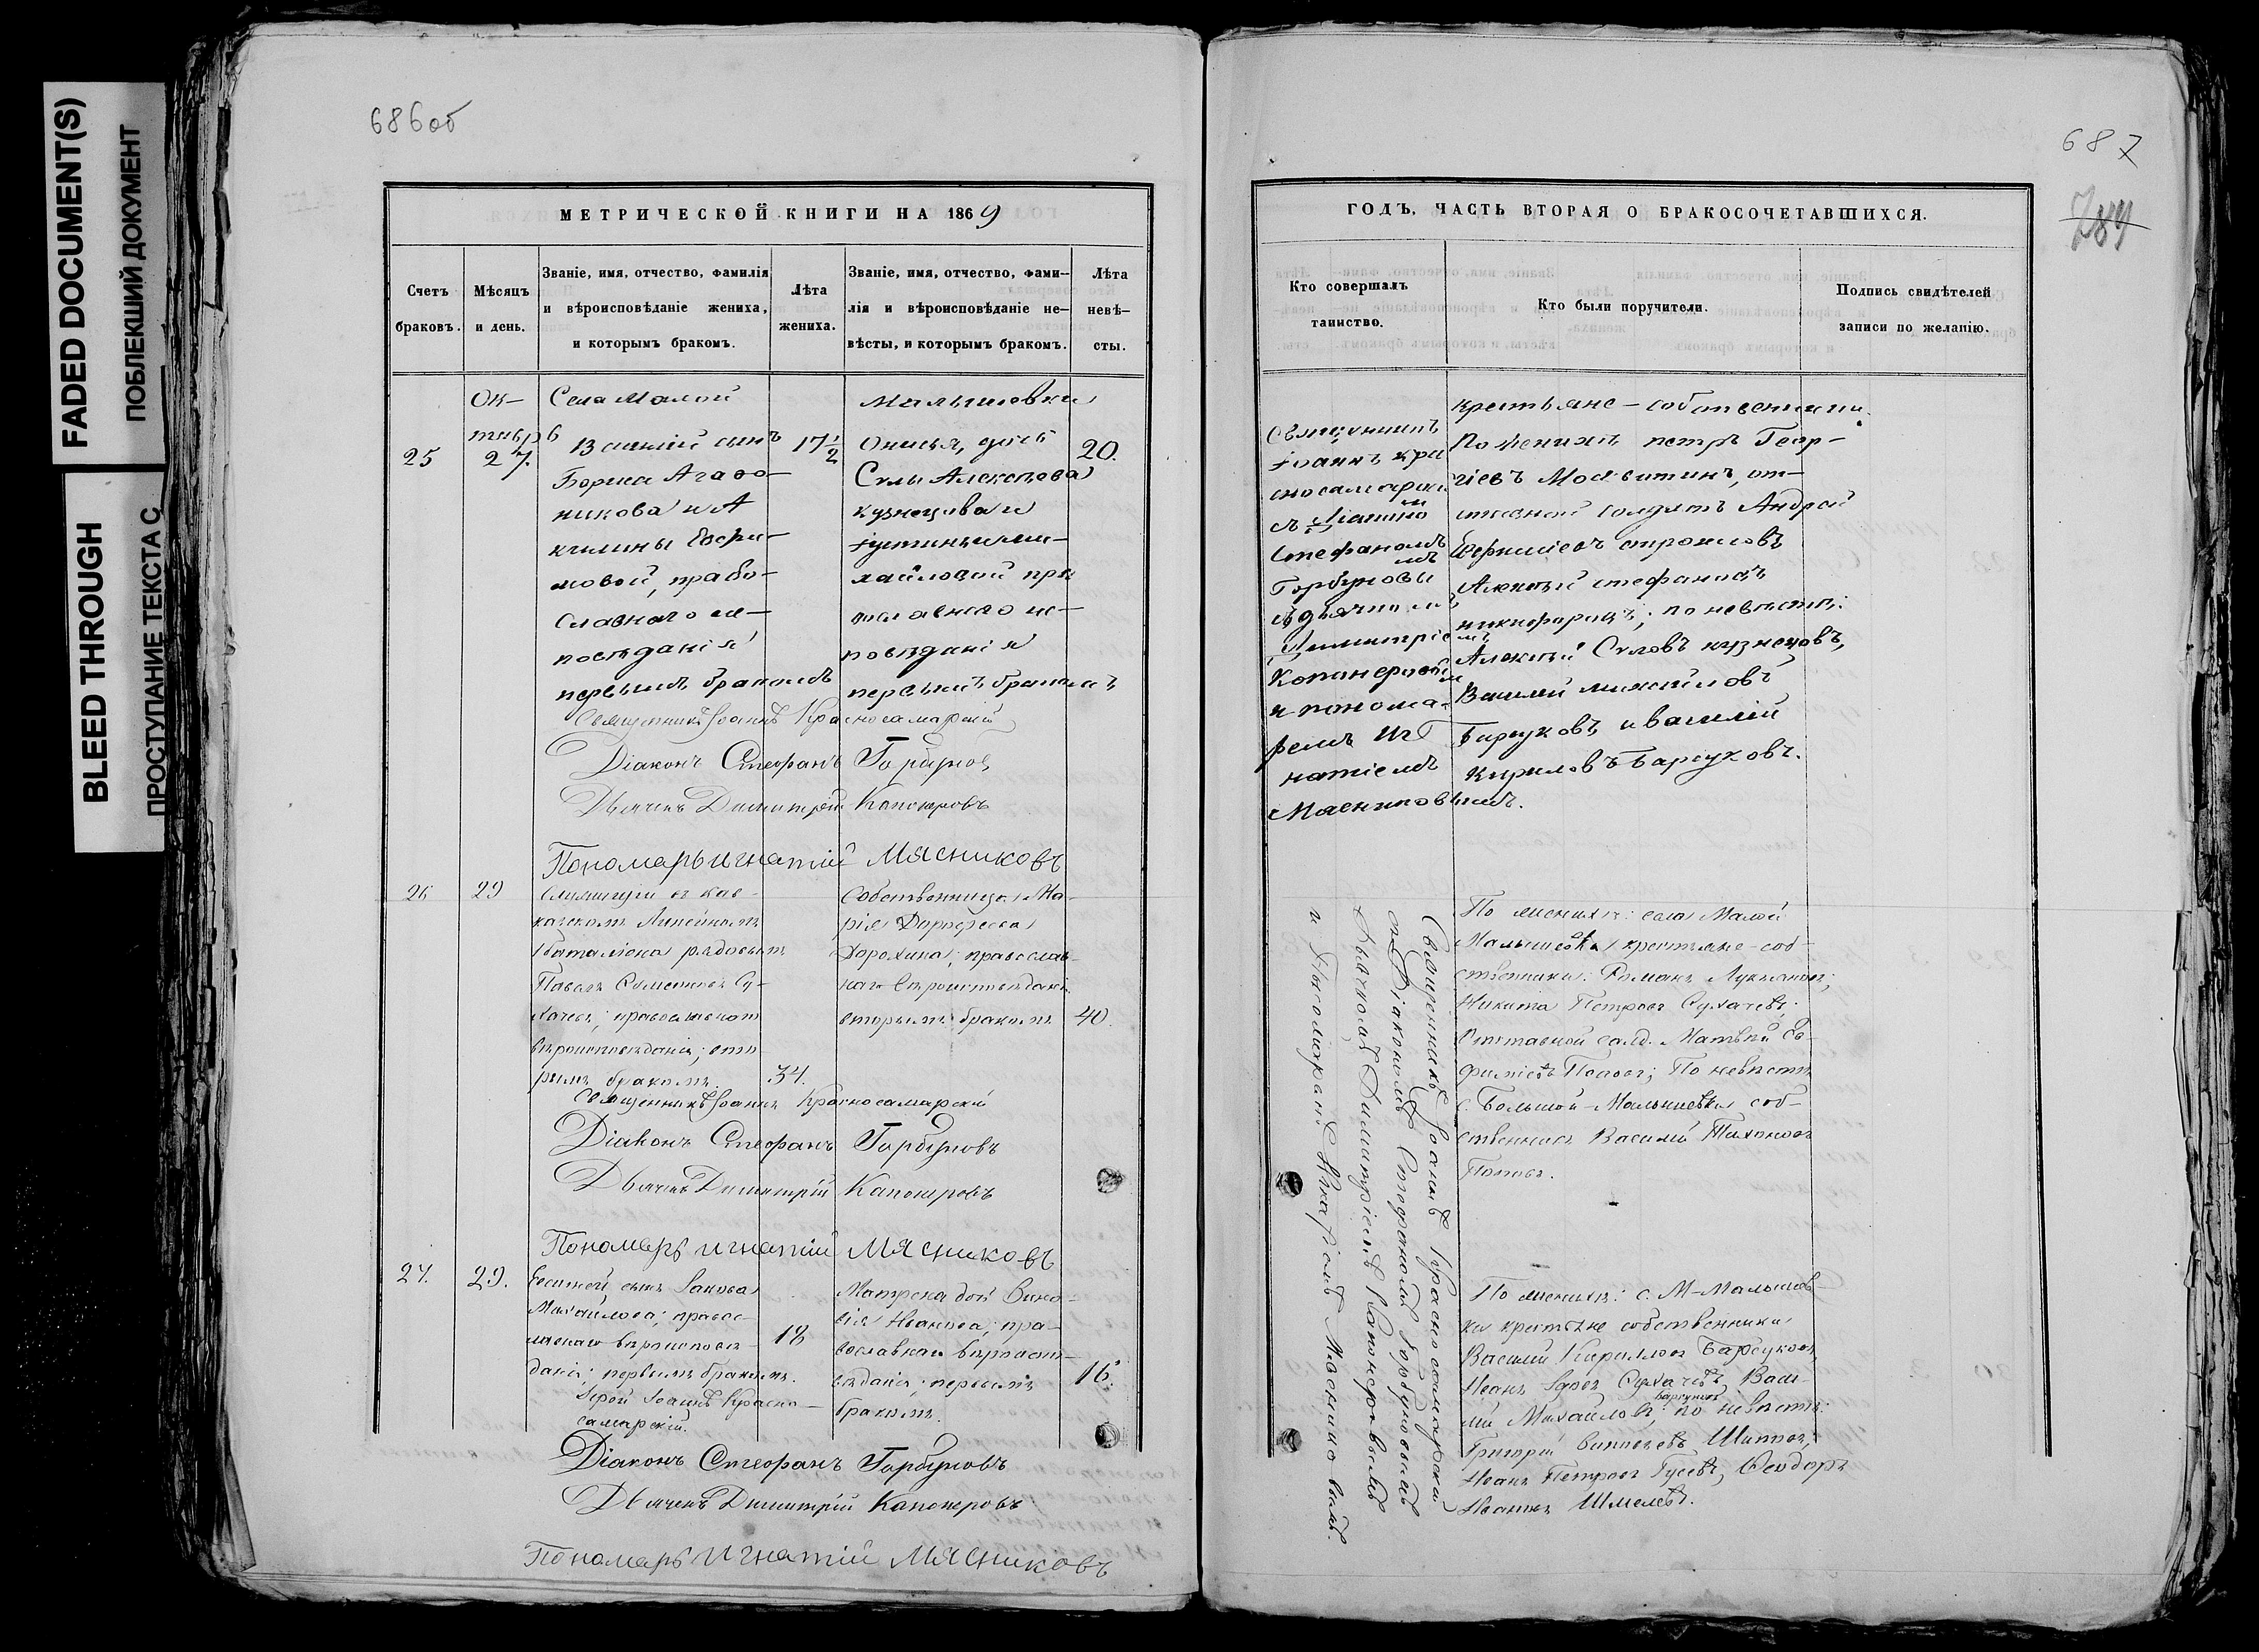 FADED DOCUMENT(S)
ПОБЛЕКШИЙ ДОКУМЕНТ
BLEED THROUGH
ПРОСТУПАНИЕ ТЕКСТА С
686об
МЕТРИЧЕСКОЙ КНИГИ НА 1869
Счетъ браковъ.
Мѣсяцъ и день.
Званіе, имя, отчество, фамилія
и вѣроисповѣданіе жениха,
и которымъ бракомъ.
Лѣта жениха.
Званіе, имя, отчество, фами-
лія и вѣроисповѣданіе не-
вѣсты, и которымъ бракомъ.
Лѣта невѣ-
сты.
25
Ок-
тябрь
27.
Села Малой
Василій сынъ
Бориса Агаѳо-
никова и А
килины Евфи-
мовой, право-
славнаго ис-
повѣданія
первымъ бракомъ
17½
Малышевки
Онисья, дочь
Силы Алексѣева
Кузнецова и
Іустиньи Ми-
хайловой пра
вославнаго ис-
повѣданія
первымъ бракомъ
20.
Священникъ Іоаннъ Красносамарскій
Діаконъ Стефанъ Горбуновъ
Дьячекъ Димитрій Капонеровъ
Пономарь Игнатій Мясниковъ
26
29
Служащій въ кав-
казскомъ Линейномъ
баталіона рядовымъ
Павелъ Семеновъ Су-
хачевъ; православнаго
вѣроисповѣданія; вто-
рымъ бракомъ.
34.
Собственница Ма-
рія Дорофеева
Дорохина; православ-
наго вѣроисповѣданія
вторымъ бракомъ
40.
Священникъ Іоаннъ Красносамарскій
Діаконъ Стефанъ Горбуновъ
Дьячекъ Димитрій Капонеровъ
Пономарь Игнатій Мясниковъ
27.
29.
Евсигней, сынъ Іакова
Михайлова; правос-
лавнаго вѣроисповѣ-
данія; первымъ бракомъ.
18
Матрена доч Вино-
вія Иванова; пра-
вославнаго вѣроиспо-
вѣданія; первымъ
бракомъ.
16.
Іерей Іоаннъ Красно-
самарскій.
Діаконъ Стефанъ Горбуновъ
Дьячекъ Димитрій Капонеровъ
Пономарь Игнатій Мясниковъ
687
789
ГОДЪ, ЧАСТЬ ВТОРАЯ О БРАКОСОЧЕТАВШИХСЯ.
Кто совершалъ
таинство.
Кто были поручители.
Подпись свидѣтелей
записи по желанію.
Священникъ
Іоаннъ Кра
сносамарскій
съ Діаконо
мъ
Стефаномъ
Горбуновы
мъ
дьячкомъ
Димитріемъ
Капонеровы
мъ
и понома-
ремъ Иг
натіемъ
Мясниковымъ.
крестьяне-собственники.
По женихѣ Петръ Геор-
гіевъ Москвитинъ, от-
ставной солдатъ Андрей
Алексѣй Стефановъ
Никифоровъ; по невѣстѣ:
Алексѣй Силовъ Кузнецовъ,
Василій Михайловъ
Барсуковъ и Василій
Кириловъ Барсуковъ.
Священникъ Іоаннъ Красносамарскій
съ Діакономъ Стефаномъ Горбуновымъ
Дьячкомъ Димитріемъ Капонеровымъ
и Пономаремъ Игнатіемъ Мясниковымъ.
По женихѣ: села Малой
Малышевки крестьяне-соб-
ственники: Романъ Лукьяновъ;
Никита Петровъ Сухачевъ;
Отставной солд. Матвѣй Ев-
фиміевъ Поповъ; По невѣстѣ
с. Большой-Малышевки соб-
ственникъ Василій Тихоновъ
Поповъ.
По женихѣ: с. М-Малышев-
ки крестьяне собственники
Василій Кириллов Барсуковъ,
Иванъ Іаков Сухачевъ, Васи-
лій Михайловъ Барсуковъ; по невѣстѣ:
Григорій Шиповъ,
Иванъ Петровъ Гусевъ, Ѳеодоръ
Ивановъ Шмелевъ.